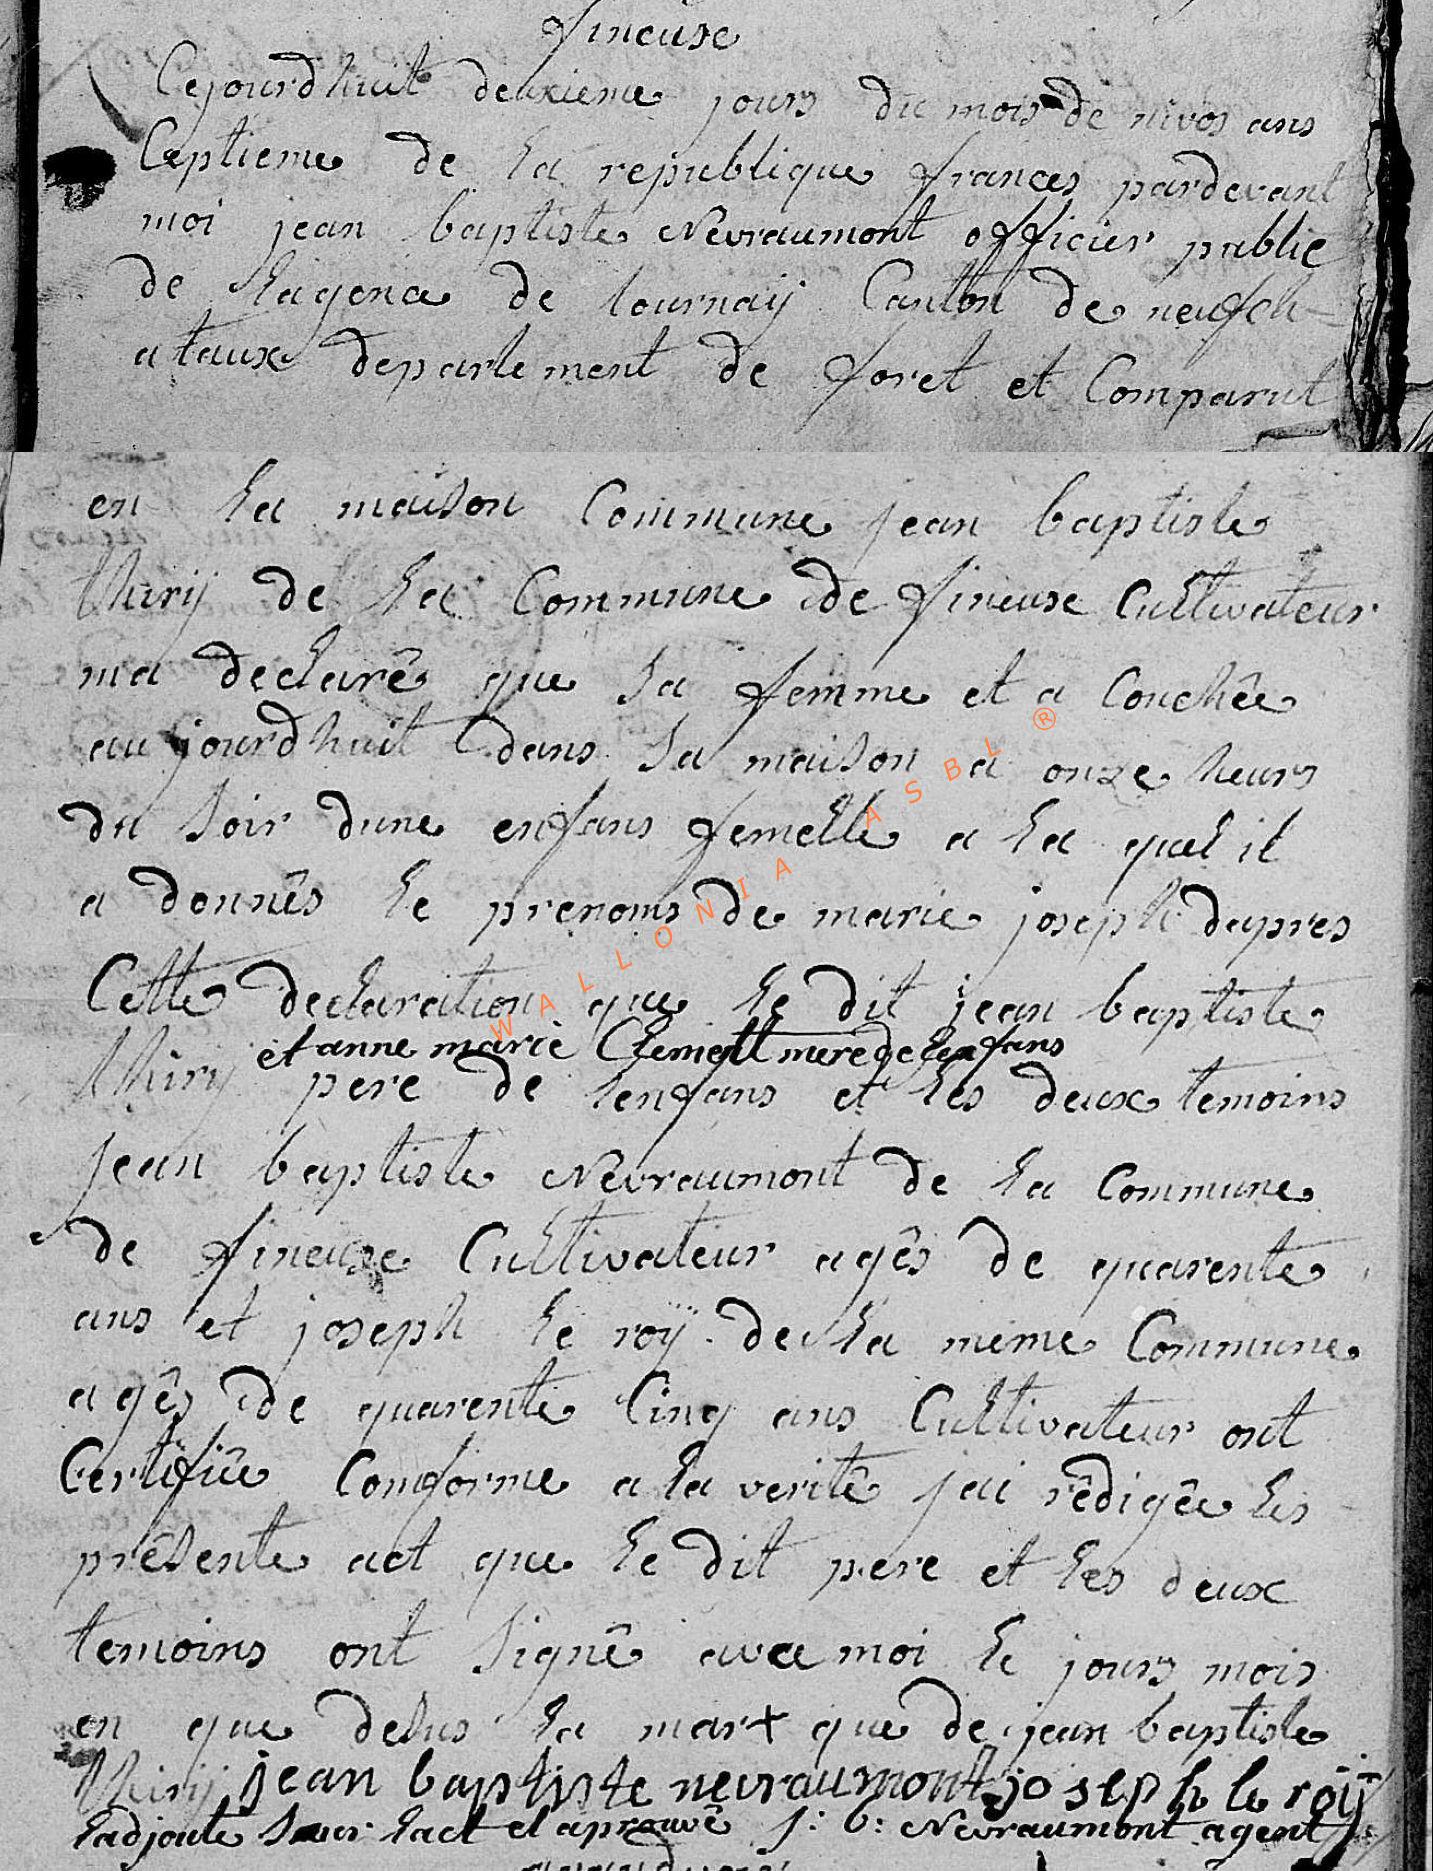 fineuse
Cejourdhuit deuxieme jours du mois de nivos ans
Ceptieme de la republique frances pardevant
moi jean baptiste Nevraumont officier public
de lagence de tournaÿ Canton de neufch
ataux departement de foret et Comparut
en la maison Commune jean baptiste
thirÿ de la Commune de fineuse Cultivateur
ma declarê que sa femme et a Couchêe
aujourdhuit dans sa maison a onze heurs
du soir dune enfans femelle a la quel il
a donnês le prenoms de marie joseph dapres
Cette declaration que le dit jean baptiste
et anne marie Clement mere de lenfans
thirÿ pere de lenfans et les deux temoins
jean baptiste Nevraumont de la Commune
de fineuse Cultivateur agês de quarente
ans et joseph le roÿ de la meme Commune
agês de quarente Cinq ans Cultivateur ont
Certifiêe Conforme a la veritê jai rêdigêe les
prêsente act que le dit pere et les deux
temoins ont signê avec moi le jours mois
en que desus la mar+que de jean baptiste
thirÿ jean baptiste nevraumont joseph le roÿ
ladjoute sur lact et aprouvê j: b: Nevraumont agent
WALLONIA ASBL ®